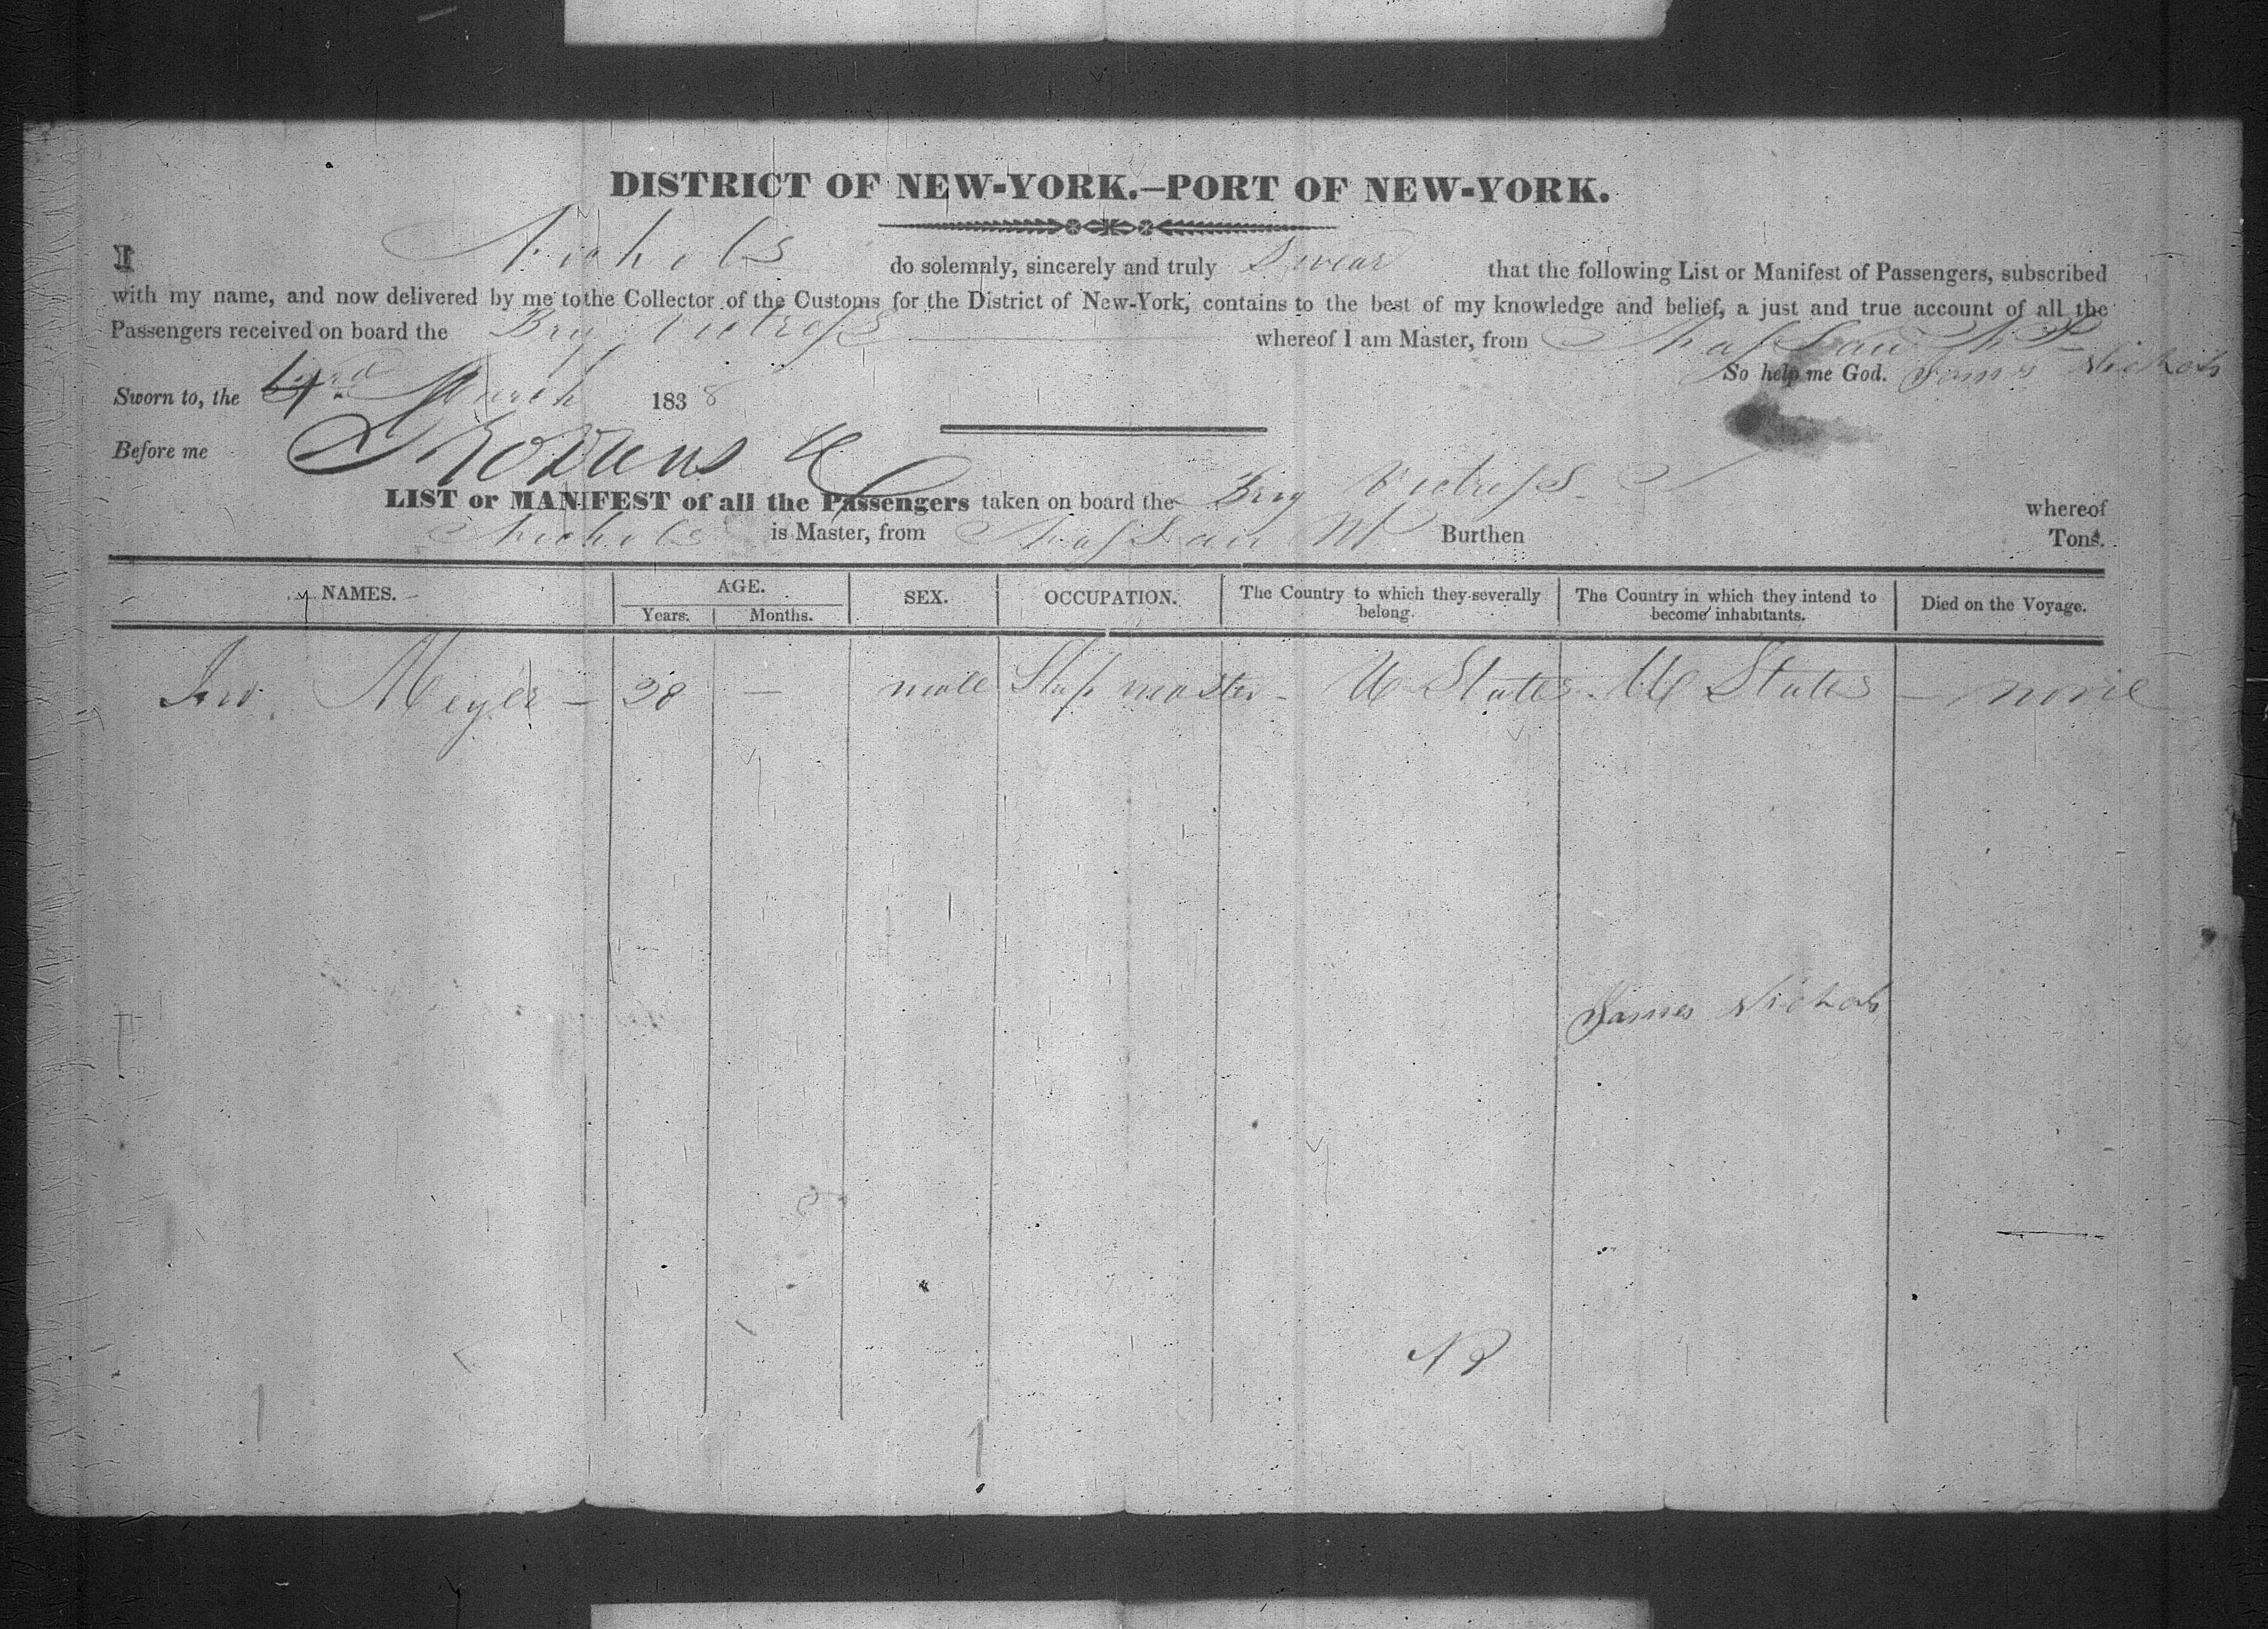 DISTRICT OF NEW-YORK.—PORT OF NEW-YORK.
I Nichols do solemnly, sincerely and truly Swear that the following List or Manifest of Passengers, subscribed
with my name, and now delivered by me to the Collector of the Customs for the District of New-York, contains to the best of my knowledge and belief, a just and true account of all the
Passengers received on board the Brig Victress whereof I am Master, from Nassau N P
So help me God. James Nichols
Sworn to, the March 1838
Before me
LIST or MANIFEST of all the Passengers taken on board the Brig Victress whereof
Nichols is Master, from Nassau NP Burthen Tons.
NAMES. AGE. SEX. OCCUPATION. The Country to which they severally belong. The Country in which they intend to become inhabitants. Died on the Voyage.
Years. Months.
Jno. Meyer — 38 — male Ship master - U States U States — none
James Nichols